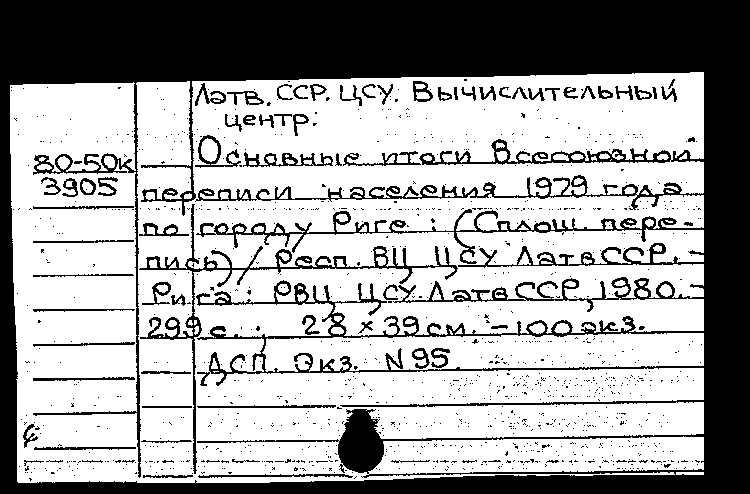 Латв. ССР. ЦСУ. Вычислительный
центр.
80-50к
3905
Основные итоги Всесоюзной
переписи населения 1979 года
по городу Риге : (Сплош. пере-
пись) / Респ. ВЦ ЦСУ ЛатвССР. –
Рига : РВЦ ЦСУ ЛатвССР, 1980. –
299 с. ; 28 × 39 см. – 100 экз.
ДСП. Экз. N 95.